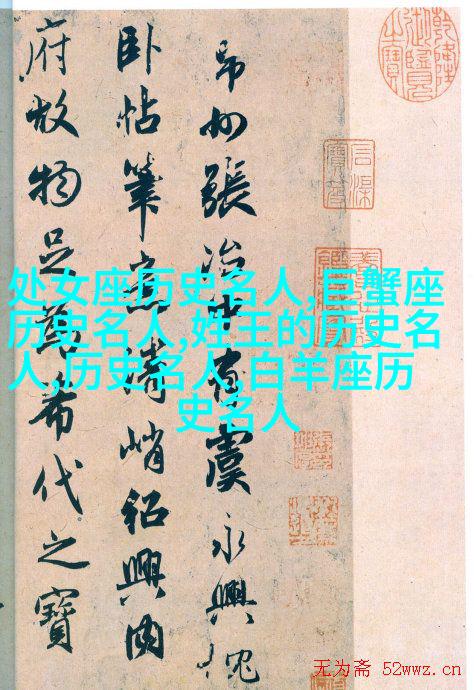 乾隆御覽之寶
州張治中有虞永興枕
卧帖筆意清峭紹興内
府故物足為希代之寶
处女座历史名人,巨蟹座
历史名人,姓王的历史名
人,历史名人,白羊座历
史名人
无为斋 52wwz.cn